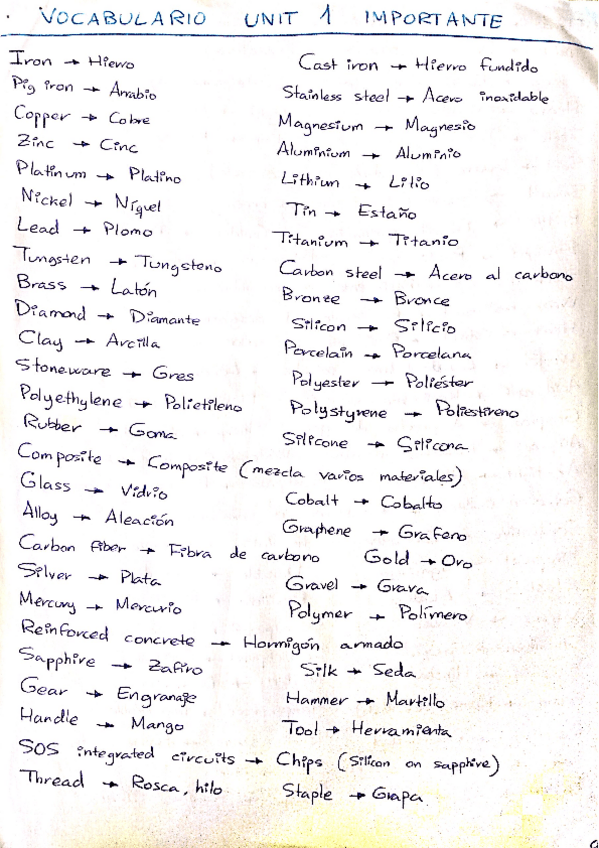 VOCABULARIO UNIT 1 IMPORTANTE
Iron → Hierro Cast iron → Hierro fundido
Pig iron → Arrabio Stainless steel → Acero inoxidable
Copper → Cobre Magnesium → Magnesio
Zinc → Cinc Aluminium → Aluminio
Platinum → Platino Lithium → Lilio
Nickel → Níquel Tin → Estaño
Lead → Plomo Titanium → Titanio
Tungsten → Tungsteno Carbon steel → Acero al carbono
Brass → Latón Bronze → Bronce
Diamond → Diamante Silicon → Silicio
Clay → Arcilla Porcelain → Porcelana
Stoneware → Gres Polyester → Poliéster
Polyethylene → Polietileno Polystyrene → Poliestireno
Rubber → Goma Silicone → Silicona
Composite → Composite (mezcla varios materiales)
Glass → Vidrio Cobalt → Cobalto
Alloy → Aleación Graphene → Grafeno
Carbon fiber → Fibra de carbono Gold → Oro
Silver → Plata Gravel → Grava
Mercury → Mercurio Polymer → Polímero
Reinforced concrete → Hormigón armado
Sapphire → Zafiro Silk → Seda
Gear → Engranaje Hammer → Martillo
Handle → Mango Tool → Herramienta
SOS integrated circuits → Chips (Silicon on sapphire)
Thread → Rosca, hilo Staple → Grapa